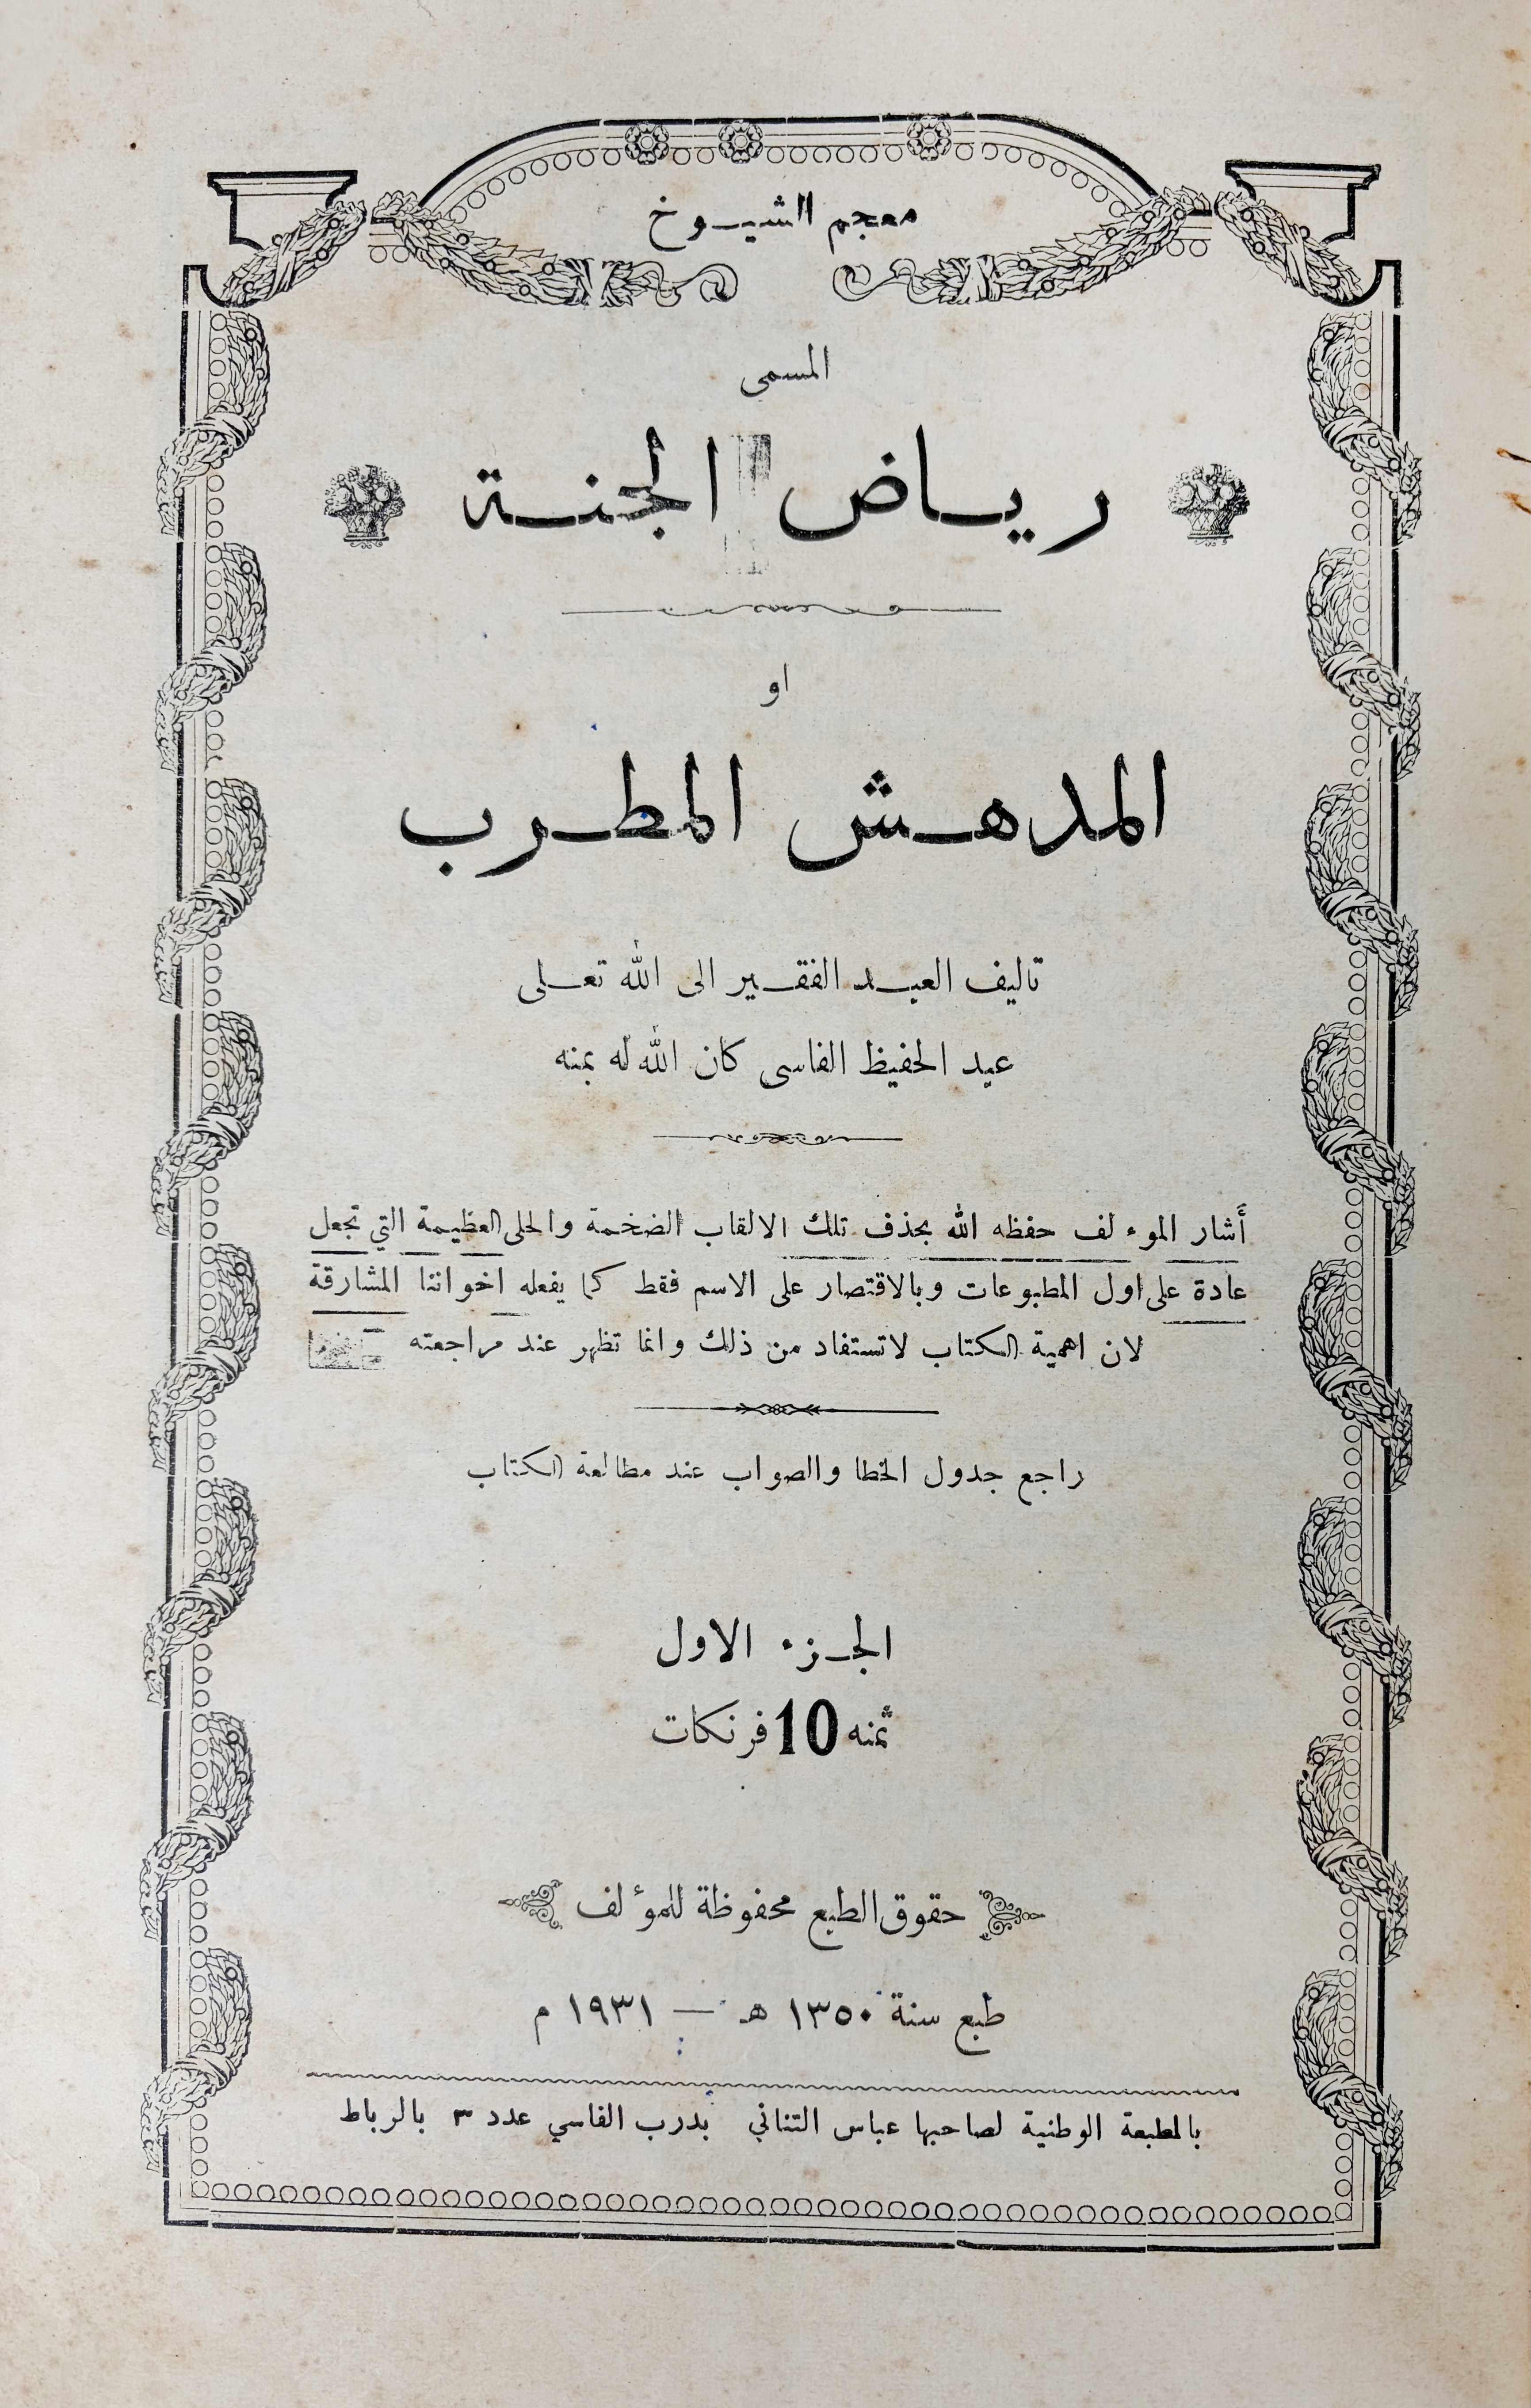 معجم الشيوخ
المسمى
رياض الجنة
او
المدهش المطرب
تاليف العبد الفقير الى الله تعلى
عبد الحفيظ الفاسى كان الله له بمنه
أشار الموءلف حفظه الله بحذف تلك الالقاب الضخمة والحلى العظيمة التي تجعل
عادة على اول المطبوعات وبالاقتصار على الاسم فقط كما يفعله اخواننا المشارقة
لان اهمية الكتاب لاتستفاد من ذلك وانما تظهر عند مراجعته
راجع جدول الخطا والصواب عند مطالعة الكتاب
الجزء الاول
ثمنه 10 فرنكات
حقوق الطبع محفوظة للمؤلف
طبع سنة ١٣٥٠ هـ — ١٩٣١ م
بالمطبعة الوطنية لصاحبها عباس التناني بدرب الفاسي عدد ٣ بالرباط